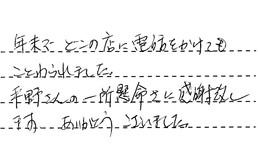 年末で どこの店に電話をかけても
ことわられました。
平野さんの一所懸命さに感謝致し
ます ありがとうございました。